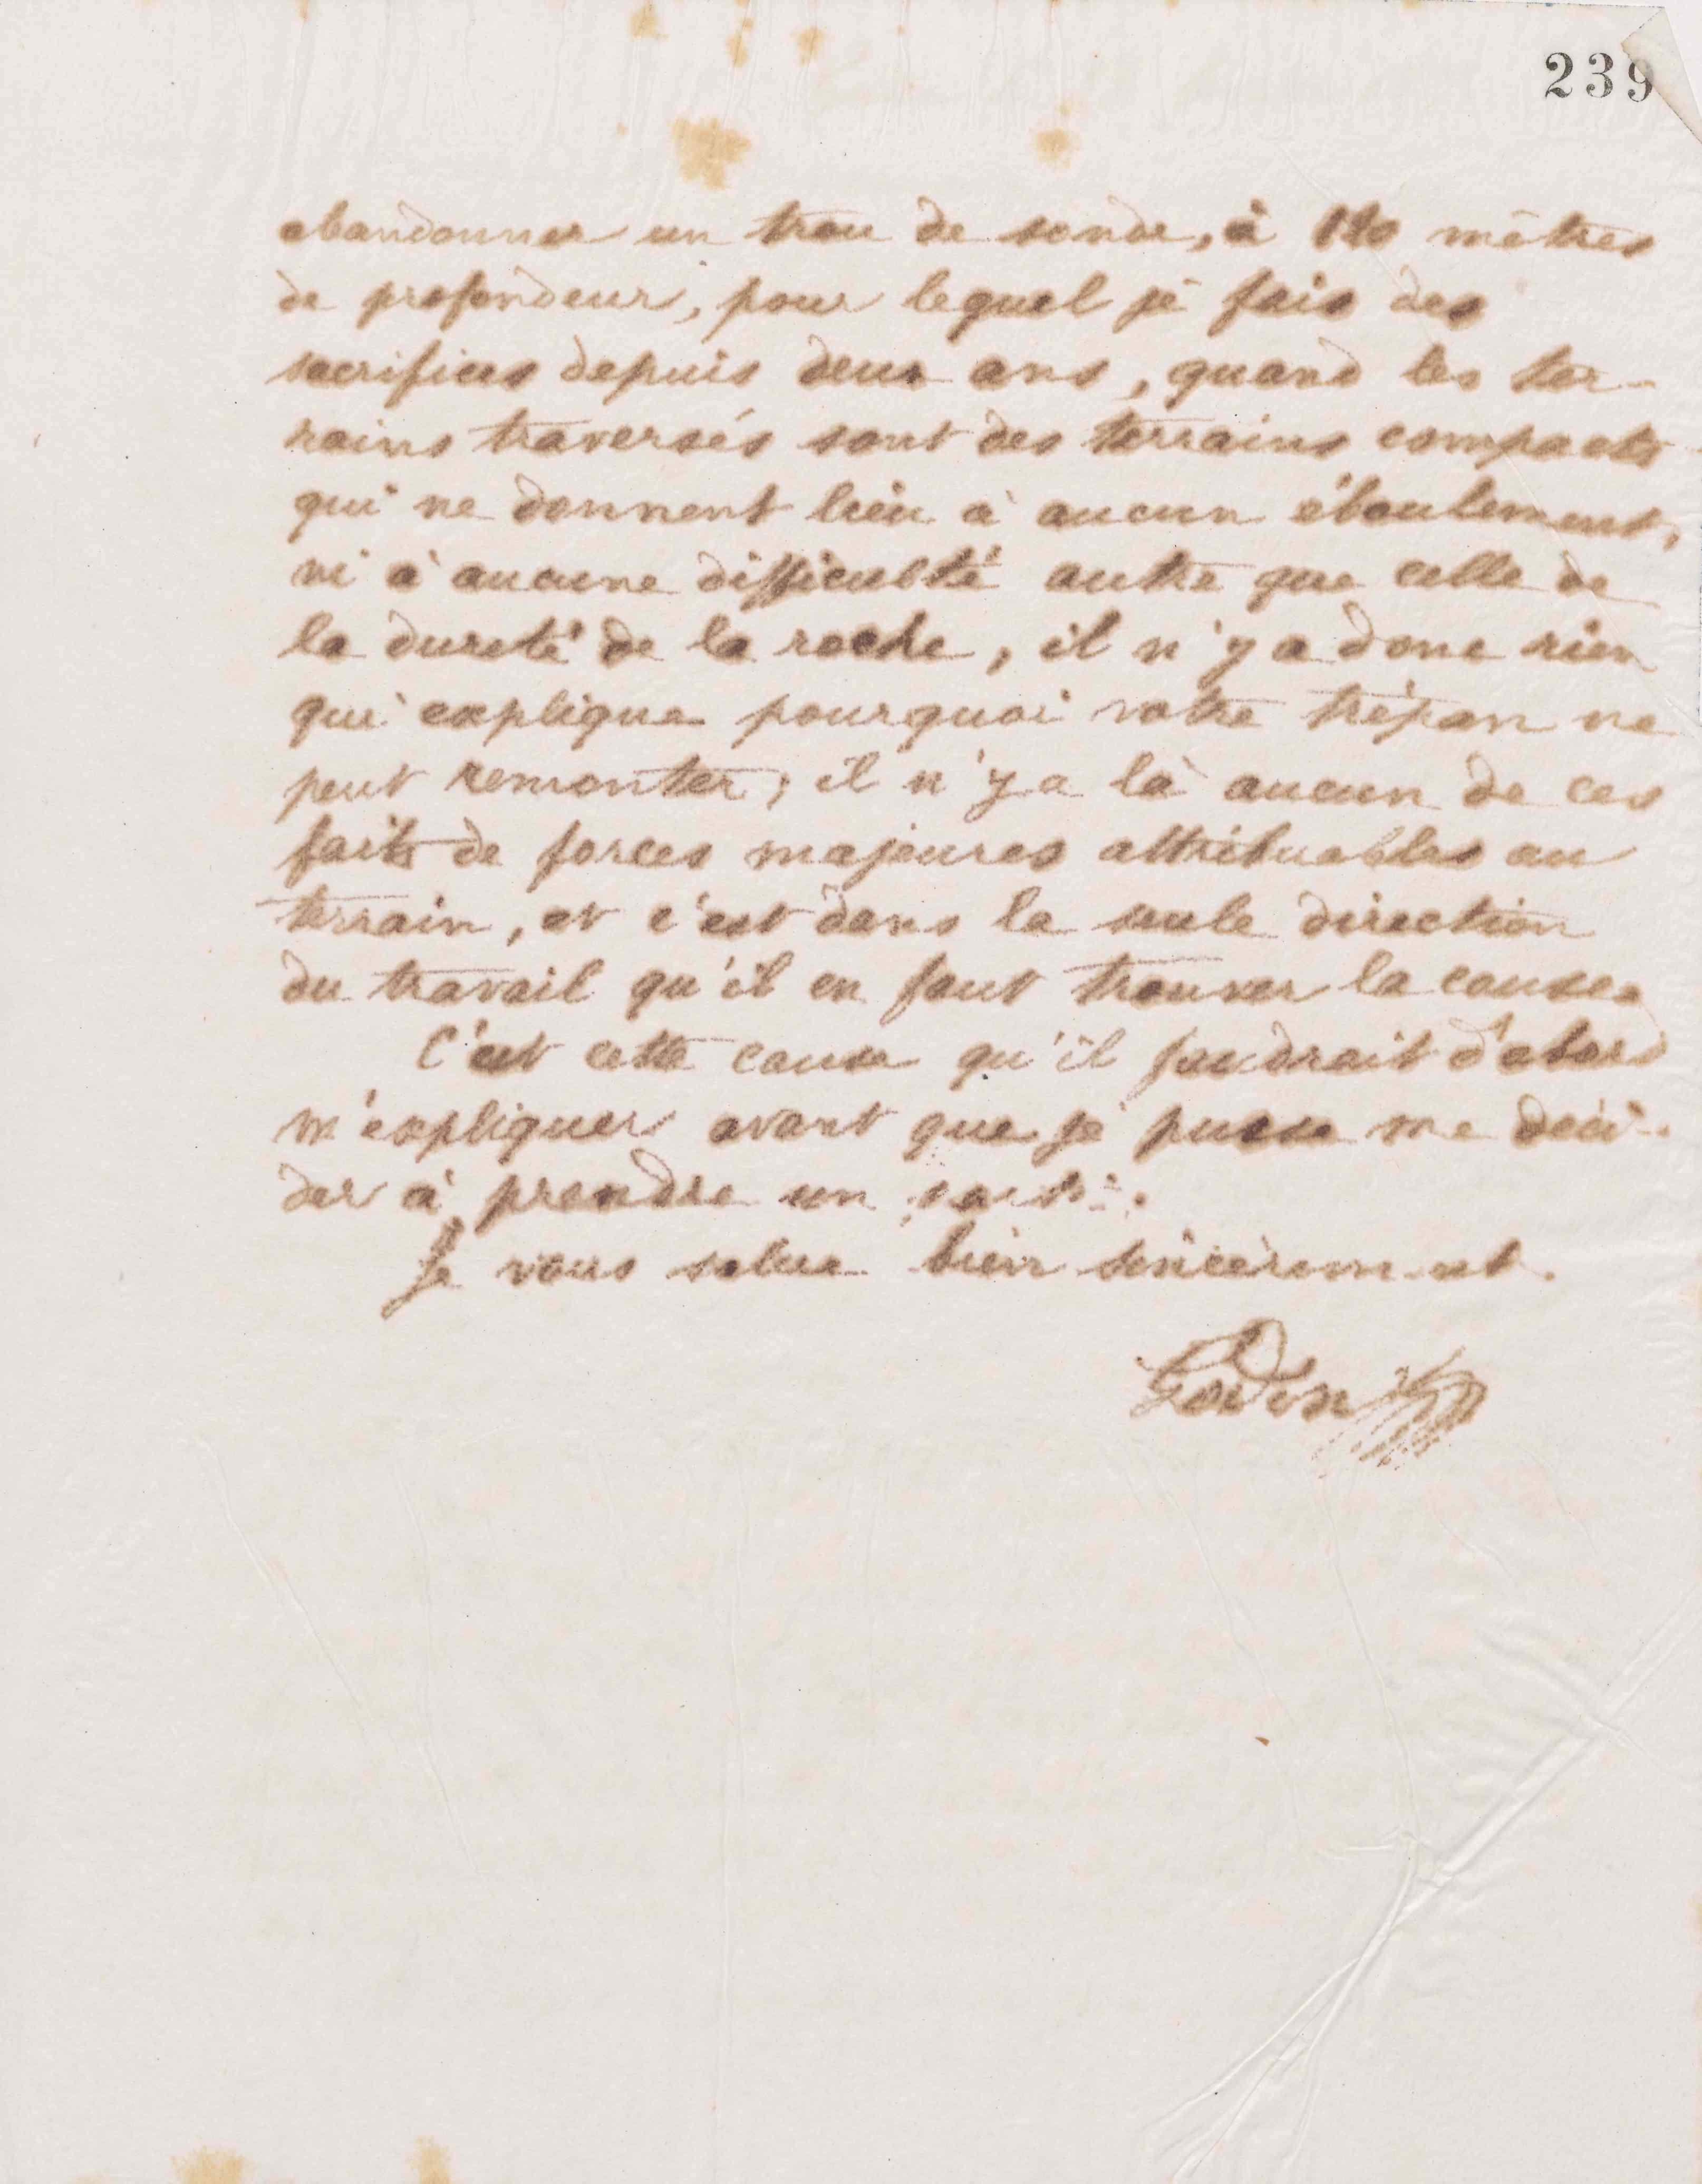 239
abandonner un trou de sonde, à 120 mètres
de profondeur, pour lequel je fais des
sacrifices depuis deux ans, quand les ter-
rains traversés sont des terrains compacts
qui ne donnent lieu à aucun éboulement,
ni à aucune difficulté autre que celle de
la dureté de la roche, il n'y a donc rien
qui explique pourquoi votre trépan ne
peut remonter; il n'y a là aucun de ces
faits de forces majeures attribuables au
terrain, et c'est dans la seule direction
du travail qu'il en faut trouver la cause.
C'est cette cause qu'il faudrait d'abord
m'expliquer avant que je puisse me déci-
der à prendre un parti.
Je vous salue bien sincèrement.
Godin